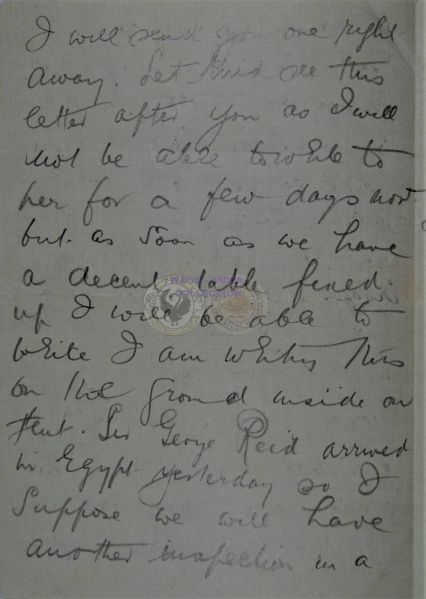 I will send you one right
away. Let Enid see this
letter after you as I will
not be able to write to
her for a few days now
but as soon as we have
a decent table fixed
up I will be able to
write I am writing this
on the ground inside our
tent. Sir George Reid arrived
in Egypt yesterday so I
suppose we will have
another inspection in a